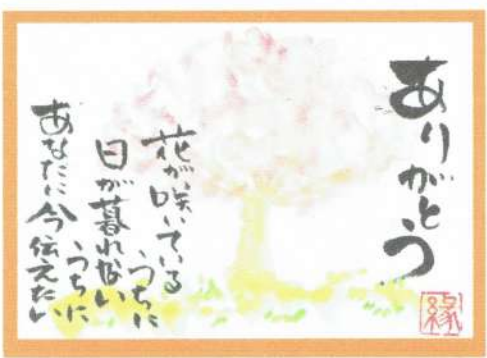 ありがとう
花が咲いている
うちに
日が暮れない
うちに
あなたに今伝えたい
縁